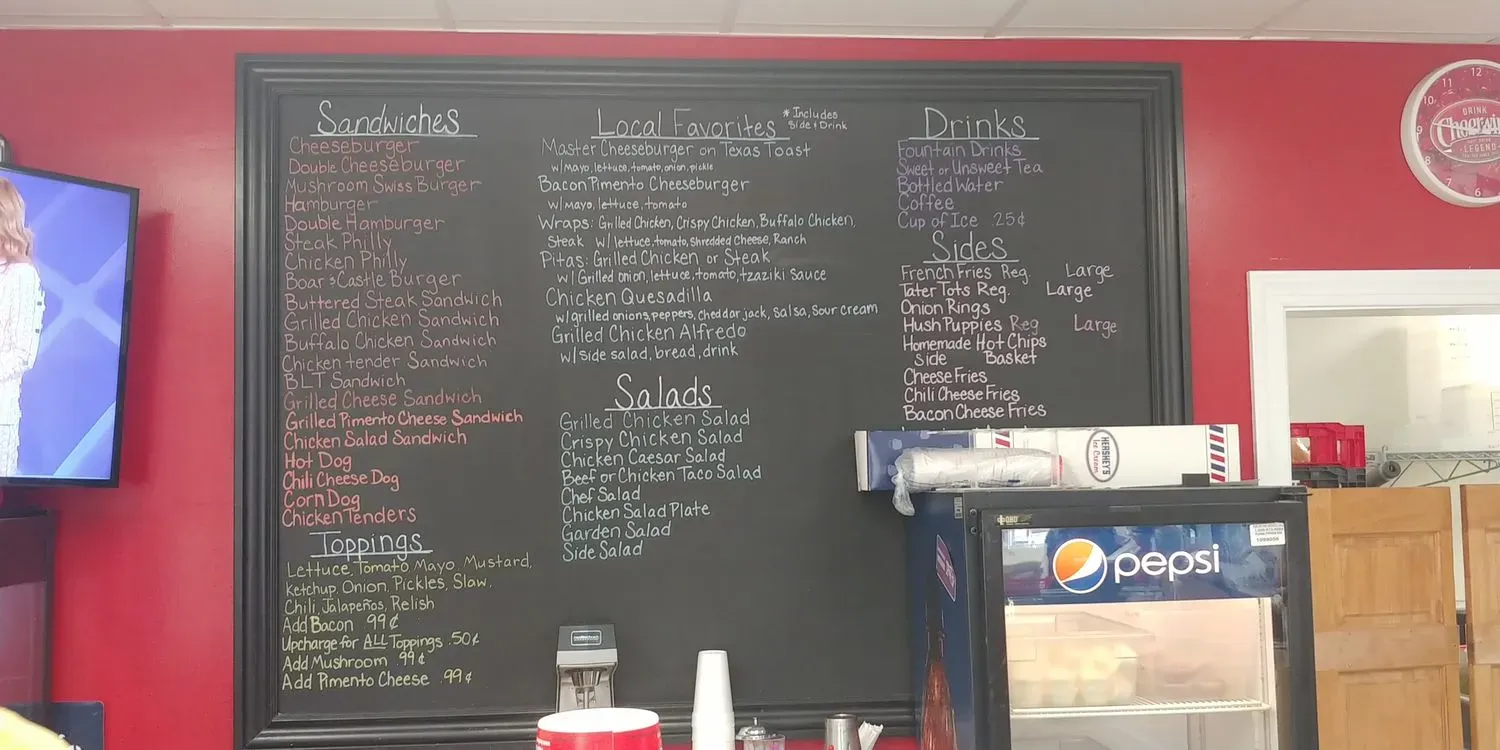 Sandwiches
Cheeseburger
Double Cheeseburger
Mushroom Swiss Burger
Hamburger
Double Hamburger
Steak Philly
Chicken Philly
Boar & Castle Burger
Buttered Steak Sandwich
Grilled Chicken Sandwich
Buffalo Chicken Sandwich
Chicken tender Sandwich
BLT Sandwich
Grilled Cheese Sandwich
Grilled Pimento Cheese Sandwich
Chicken Salad Sandwich
Hot Dog
Chili Cheese Dog
Corn Dog
Chicken Tenders
Toppings
Lettuce, Tomato, Mayo, Mustard,
Ketchup, Onion, Pickles, Slaw,
Chili, Jalapeños, Relish
Add Bacon .99¢
Upcharge for ALL Toppings .50¢
Add Mushroom .99¢
Add Pimento Cheese .99¢
Local Favorites
* Includes
Side & Drink
Master Cheeseburger on Texas Toast
w/Mayo, lettuce, tomato, onion, pickle
Bacon Pimento Cheeseburger
w/Mayo, lettuce, tomato
Wraps: Grilled Chicken, Crispy Chicken, Buffalo Chicken,
Steak w/ lettuce, tomato, Shredded Cheese, Ranch
Pitas: Grilled Chicken or Steak
w/ Grilled onion, lettuce, tomato, tzaziki sauce
Chicken Quesadilla
w/grilled onions, peppers, cheddar jack, salsa, sour cream
Grilled Chicken Alfredo
w/side salad, bread, drink
Salads
Grilled Chicken Salad
Crispy Chicken Salad
Chicken Caesar Salad
Beef or Chicken Taco Salad
Chef Salad
Chicken Salad Plate
Garden Salad
Side Salad
Drinks
Fountain Drinks
Sweet or Unsweet Tea
Bottled Water
Coffee
Cup of Ice .25¢
Sides
French Fries Reg. Large
Tater Tots Reg. Large
Onion Rings
Hush Puppies Reg Large
Homemade Hot Chips
Side Basket
Cheese Fries
Chili Cheese Fries
Bacon Cheese Fries
HERSHEY'S
Ice Cream
pepsi
12
11
10
9
8
7
6
DRINK
Cheerwine
LEGEND